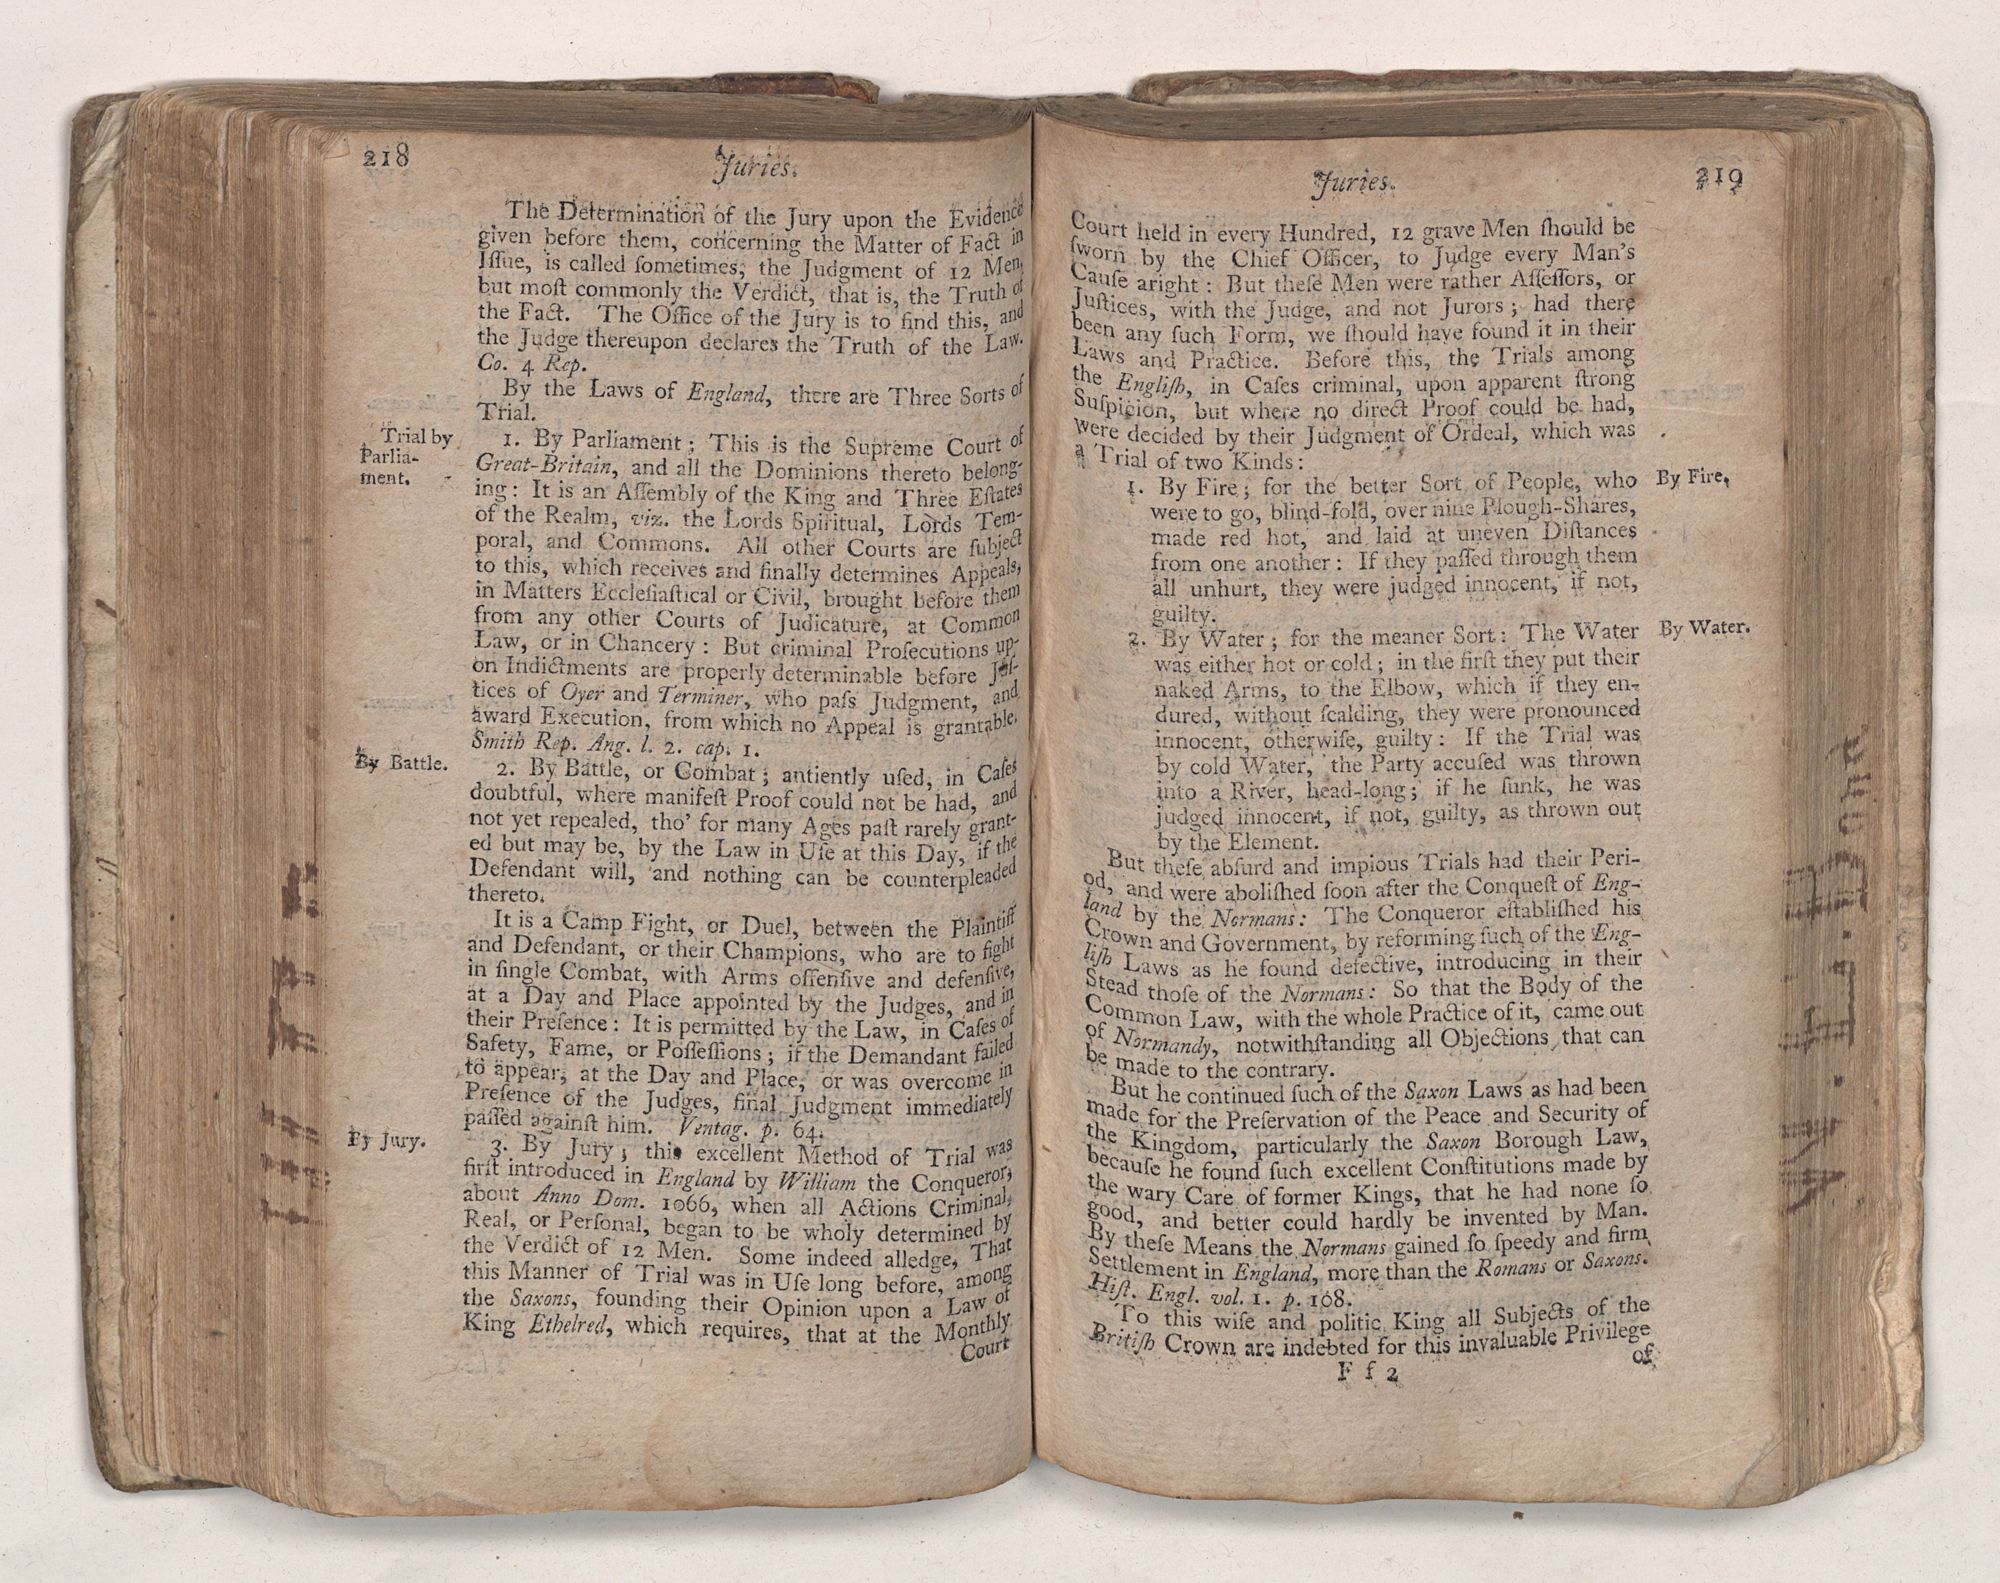 218
Juries.
The Determination of the Jury upon the Evidence
given before them, concerning the Matter of Fact in
Iſſue, is called ſometimes, the Judgment of 12 Men,
but moſt commonly the Verdict, that is, the Truth of
the Fact. The Office of the Jury is to find this, and
the Judge thereupon declares the Truth of the Law.
Co. 4 Rep.
By the Laws of England, there are Three Sorts of
Trial.
Trial by
Parlia-
ment.
1. By Parliament; This is the Supreme Court of
Great-Britain, and all the Dominions thereto belong-
ing: It is an Aſſembly of the King and Three Eſtates
of the Realm, viz. the Lords Spiritual, Lords Tem-
poral, and Commons. All other Courts are ſubject
to this, which receives and finally determines Appeals,
in Matters Eccleſiaſtical or Civil, brought before them
from any other Courts of Judicature, at Common
Law, or in Chancery: But criminal Proſecutions up-
on Indictments are properly determinable before Juſ-
tices of Oyer and Terminer, who paſs Judgment, and
award Execution, from which no Appeal is grantable.
Smith Rep. Ang. l. 2. cap. 1.
By Battle.
2. By Battle, or Combat; antiently uſed, in Caſes
doubtful, where manifeſt Proof could not be had, and
not yet repealed, tho' for many Ages paſt rarely grant-
ed but may be, by the Law in Uſe at this Day, if the
Defendant will, and nothing can be counterpleaded
thereto.
It is a Camp Fight, or Duel, between the Plaintiff
and Defendant, or their Champions, who are to fight
in ſingle Combat, with Arms offenſive and defenſive,
at a Day and Place appointed by the Judges, and in
their Preſence: It is permitted by the Law, in Caſes of
Safety, Fame, or Poſſeſſions; if the Demandant failed
to appear, at the Day and Place, or was overcome in
Preſence of the Judges, final Judgment immediately
paſſed againſt him. Ventag. p. 64.
By Jury.
3. By Jury; this excellent Method of Trial was
firſt introduced in England by William the Conqueror,
about Anno Dom. 1066, when all Actions Criminal,
Real, or Perſonal, began to be wholy determined by
the Verdict of 12 Men. Some indeed alledge, That
this Manner of Trial was in Uſe long before, among
the Saxons, founding their Opinion upon a Law of
King Ethelred, which requires, that at the Monthly
Court
Juries.
219
Court held in every Hundred, 12 grave Men ſhould be
ſworn by the Chief Officer, to Judge every Man's
Cauſe aright: But theſe Men were rather Aſſeſſors, or
Juſtices, with the Judge, and not Jurors; had there
been any ſuch Form, we ſhould have found it in their
Laws and Practice. Before this, the Trials among
the Engliſh, in Caſes criminal, upon apparent ſtrong
Suſpicion, but where no direct Proof could be had,
were decided by their Judgment of Ordeal, which was
a Trial of two Kinds:
1. By Fire; for the better Sort of People, who
By Fire,
were to go, blind-fold, over nine Plough-Shares,
made red hot, and laid at uneven Diſtances
from one another: If they paſſed through them
all unhurt, they were judged innocent, if not,
guilty.
2. By Water; for the meaner Sort: The Water
By Water.
was either hot or cold; in the firſt they put their
naked Arms, to the Elbow, which if they en-
dured, without ſcalding, they were pronounced
innocent, otherwiſe, guilty: If the Trial was
by cold Water, the Party accuſed was thrown
into a River, head-long; if he ſunk, he was
judged innocent, if not, guilty, as thrown out
by the Element.
But theſe abſurd and impious Trials had their Peri-
od, and were aboliſhed ſoon after the Conqueſt of Eng-
land by the Normans: The Conqueror eſtabliſhed his
Crown and Government, by reforming ſuch of the Eng-
liſh Laws as he found defective, introducing in their
Stead thoſe of the Normans: So that the Body of the
Common Law, with the whole Practice of it, came out
of Normandy, notwithſtanding all Objections that can
be made to the contrary.
But he continued ſuch of the Saxon Laws as had been
made for the Preſervation of the Peace and Security of
the Kingdom, particularly the Saxon Borough Law,
becauſe he found ſuch excellent Conſtitutions made by
the wary Care of former Kings, that he had none ſo
good, and better could hardly be invented by Man.
By theſe Means the Normans gained ſo ſpeedy and firm
Settlement in England, more than the Romans or Saxons.
Hiſt. Engl. vol. 1. p. 108.
To this wiſe and politic King all Subjects of the
Britiſh Crown are indebted for this invaluable Privilege
F f 2
of